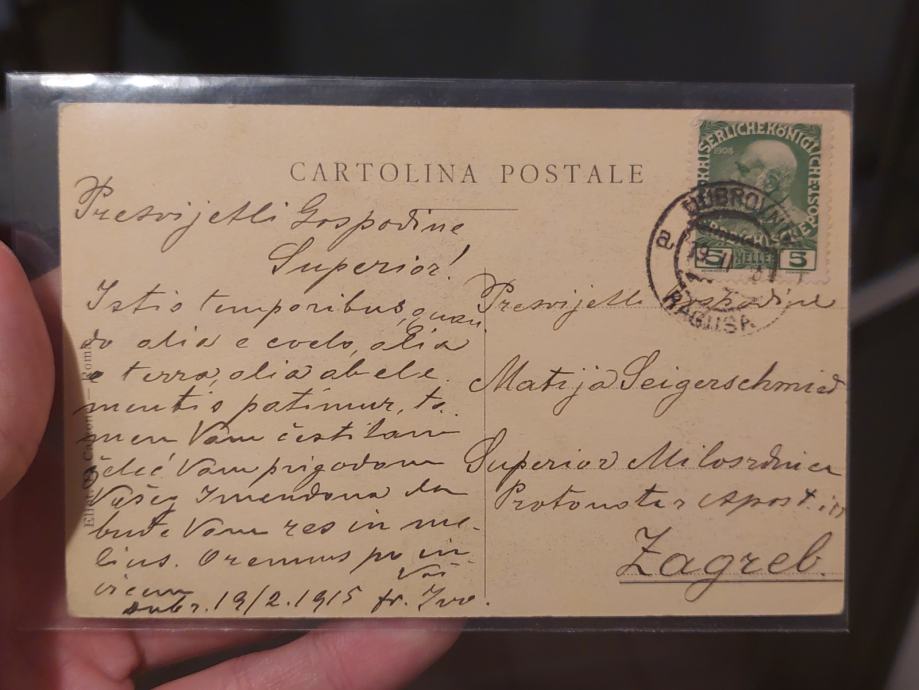 CARTOLINA POSTALE
Presvijetli Gospodine
Superior!
Istis temporibus, quan
do alia e coelo, alia
e terra, alia ab ele
mentis patimur, ta
men Vam čestitam
želeć Vam prigodom
Vašeg Imendana da
bude Vam res in me-
lius. Oremus pro in
vicem Vaš
Dubr. 19/2.1915 fr. Ivo.
KAISERLICHE KÖNIGLICHE ÖSTERR
1908
5 HELLER 5
DUBROVNIK
a
RAGUSA
Presvijetli Gospodine
Matija Seigerschmied
Superior Milosrdnica
Protonotar Apost.
Zagreb.
Roma